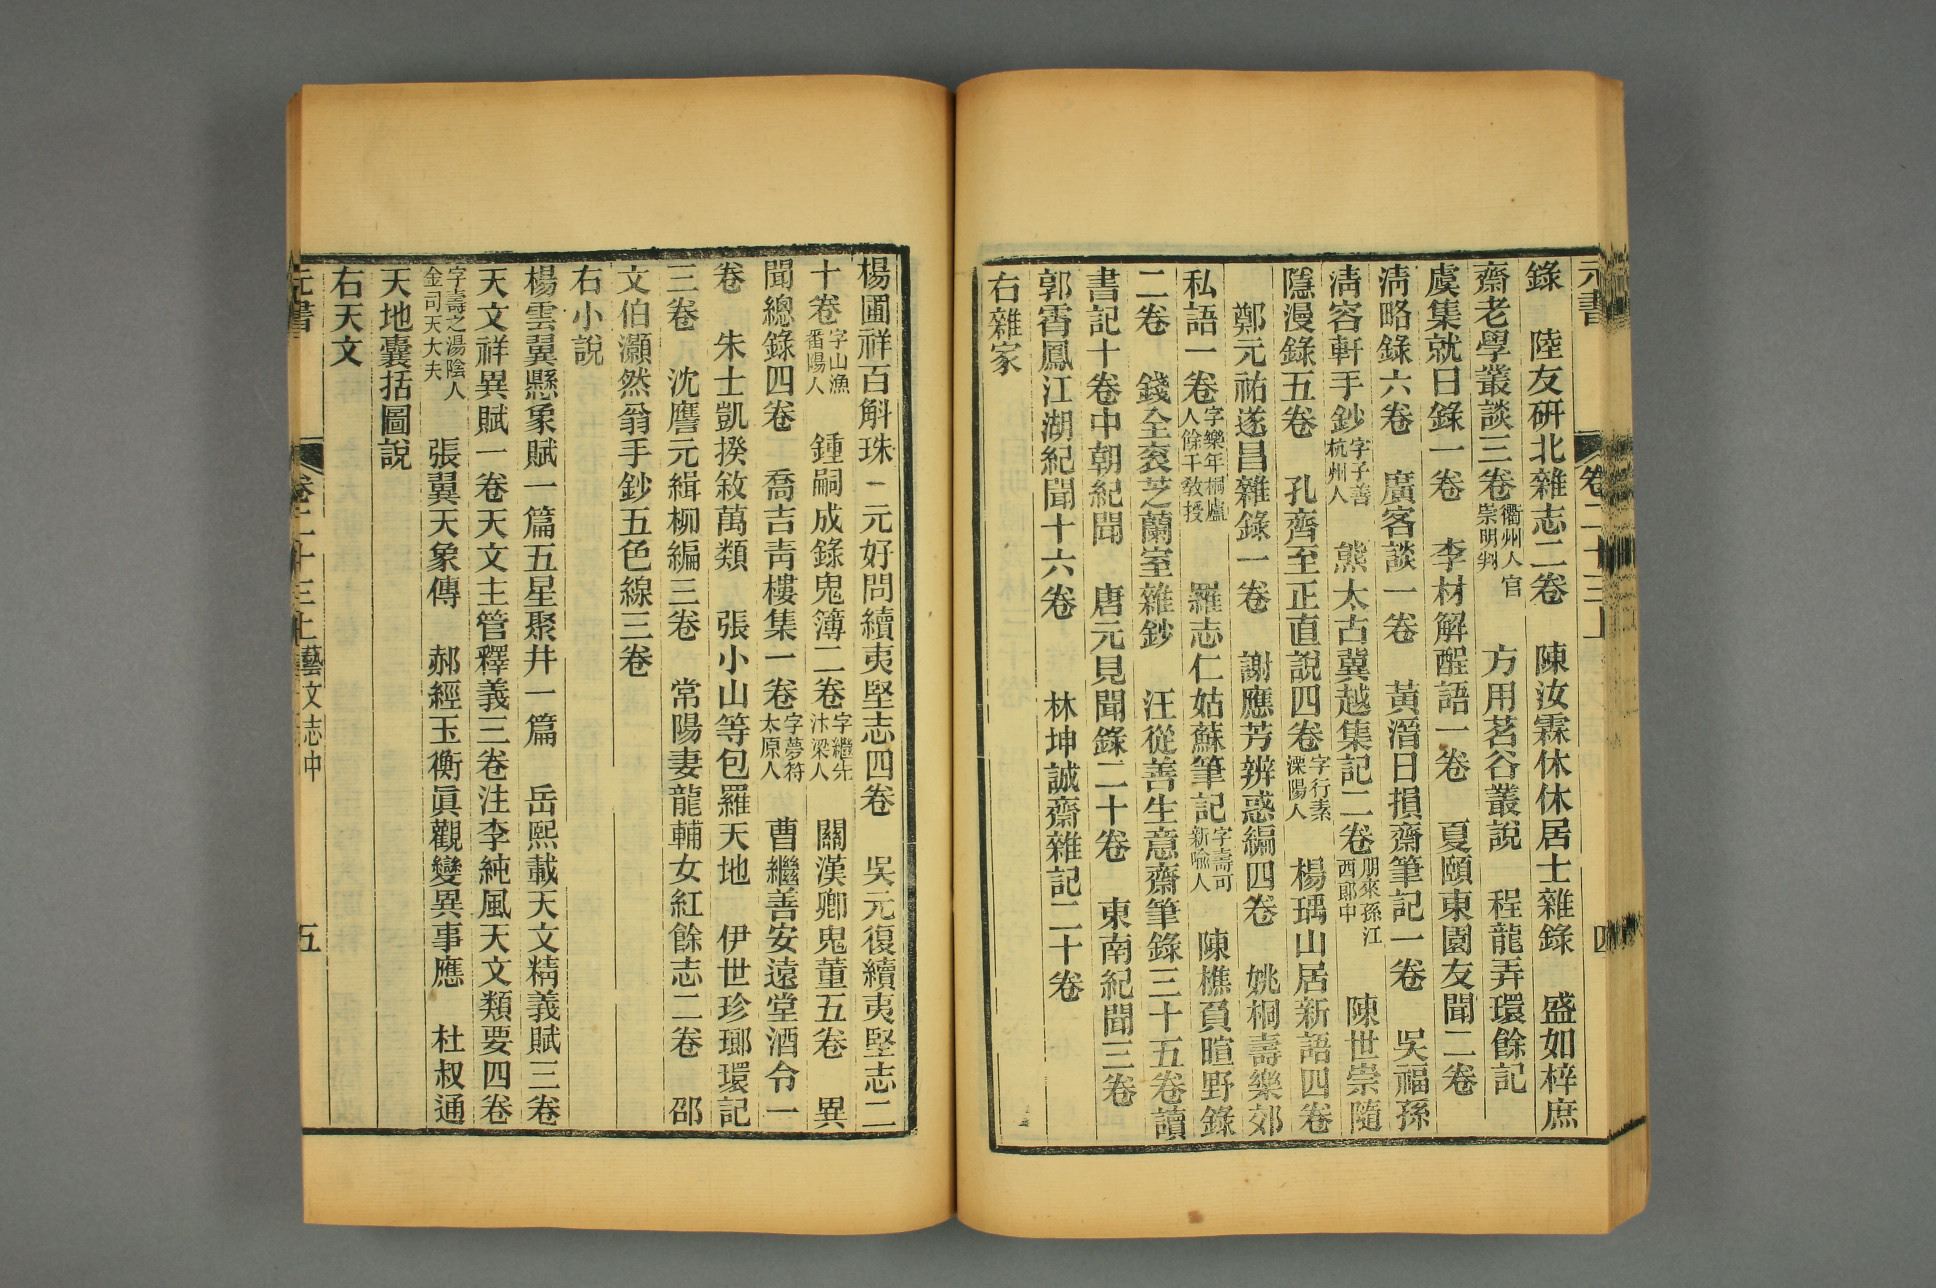 元書 卷二十三上 四
錄　陸友研北雜志二卷　陳汝霖休休居士雜錄　盛如梓庶
齋老學叢談三卷衢州人官崇明判　方用茗谷叢說　程龍弄環餘記
虞集就日錄一卷　李材解酲語一卷　夏頤東園友聞二卷
淸略錄六卷　廣客談一卷　黃溍日損齋筆記一卷　吳福孫
淸容軒手鈔字子善杭州人　熊太古冀越集記二卷朋來孫江西郎中　陳世崇隨
隱漫錄五卷　孔齊至正直說四卷字行素溧陽人　楊瑀山居新語四卷
鄭元祐遂昌雜錄一卷　謝應芳辨惑編四卷　姚桐壽樂郊
私語一卷字樂年桐廬人餘干敎授　羅志仁姑蘇筆記字壽可新喻人　陳樵負暄野錄
二卷　錢全袞芝蘭室雜鈔　汪從善生意齋筆錄三十五卷讀
書記十卷中朝紀聞　唐元見聞錄二十卷　東南紀聞三卷
郭霄鳳江湖紀聞十六卷　林坤誠齋雜記二十卷
右雜家
楊圃祥百斛珠　元好問續夷堅志四卷　吳元復續夷堅志二
十卷字山漁番陽人　鍾嗣成錄鬼簿二卷字繼先汴梁人　關漢卿鬼董五卷　異
聞總錄四卷　喬吉靑樓集一卷字夢符太原人　曹繼善安遠堂酒令一
卷　朱士凱揆敘萬類　張小山等包羅天地　伊世珍瑯環記
三卷　沈麿元緝柳編三卷　常陽妻龍輔女紅餘志二卷　邵
文伯灝然翁手鈔五色線三卷
右小說
楊雲翼懸象賦一篇五星聚井一篇　岳熙載天文精義賦三卷
天文祥異賦一卷天文主管釋義三卷注李純風天文類要四卷
字壽之湯陰人金司天大夫　張翼天象傳　郝經玉衡眞觀變異事應　杜叔通
天地囊括圖說
右天文
元書 卷二十三上 藝文志中 五